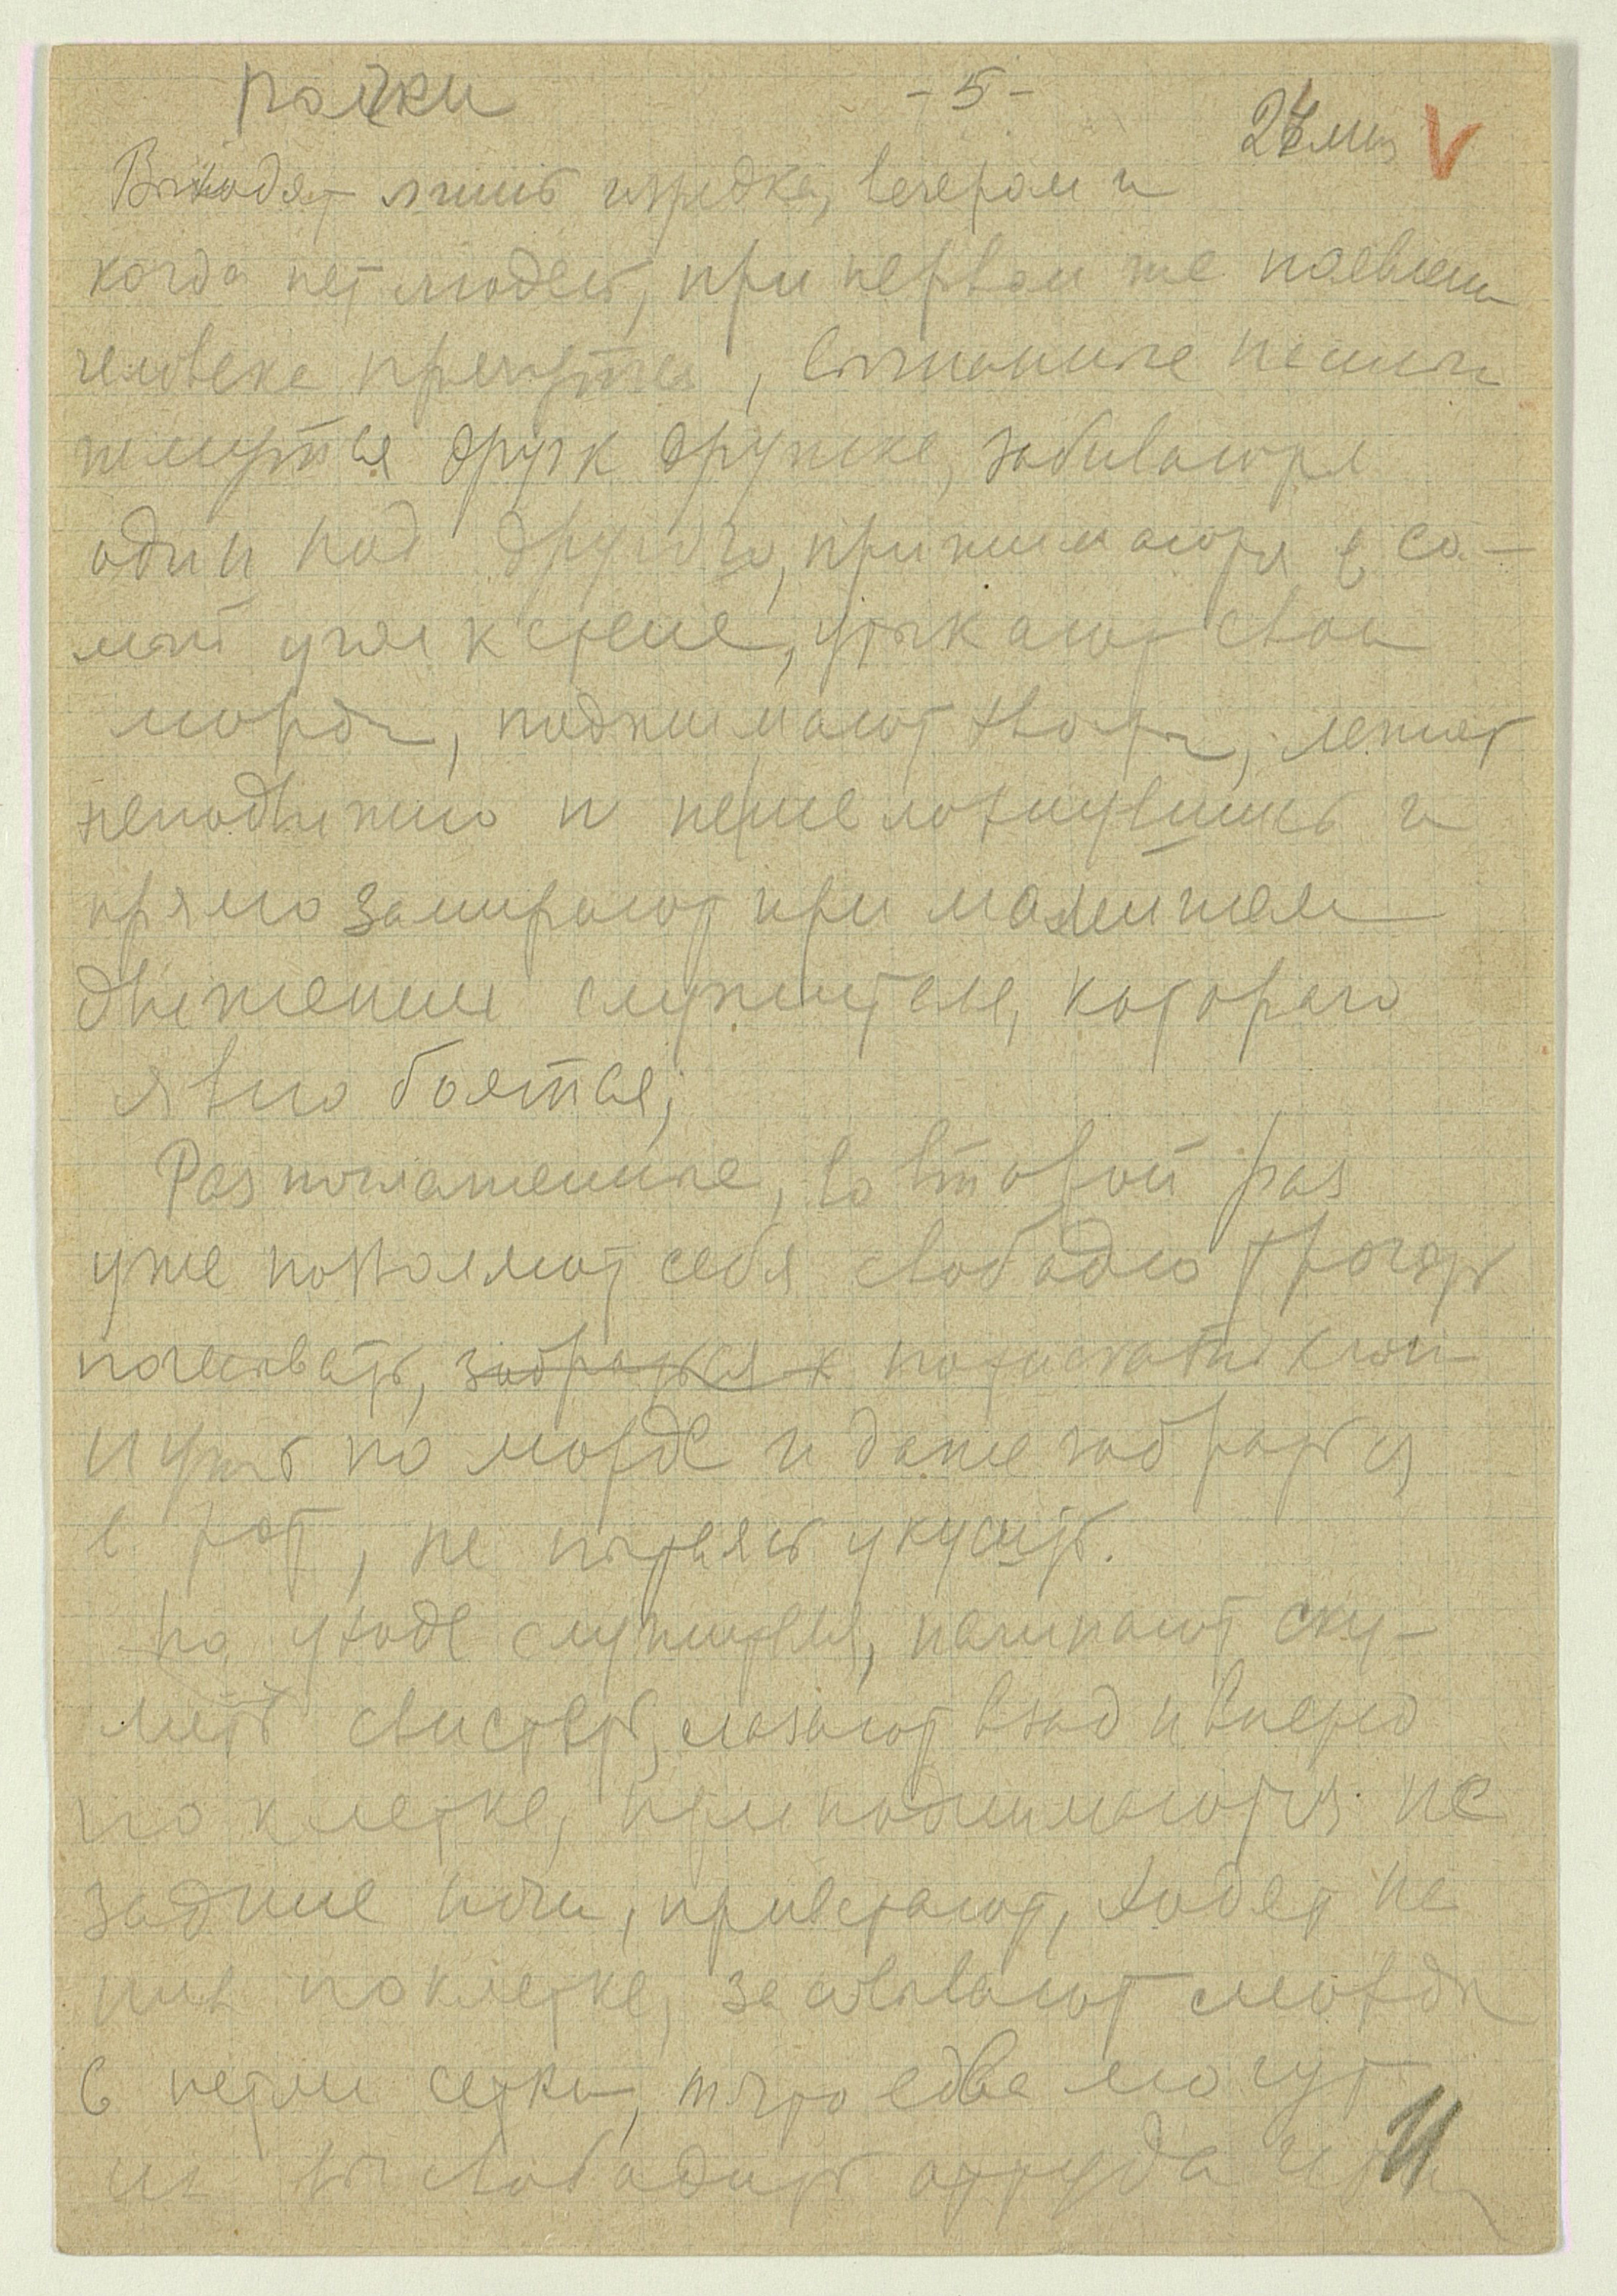 - 5 -
Выходят лишь изредка, вечером и
когда нет людей, при первом же появлени
человека прячутся, выгнанные
жмутся друг к дружке, забиваются
один под другого, прижимаются в са-
мый угол к стене, утыкают свои
морды, поднимают хвосты, лежат
неподвижно и не шелохнувшись и
прямо замирают при малейшем
движении служителя, которого
явно боятся;
Раз поглаженные, во второй раз
уже позволяют себя свободно трогать
почесывать, забраться к потискать
по морде и даже забраться
в рот, не пытаясь укусить.
По уходе служителя, начинают ску-
лить свистеть, лазают взад и вперед
по клетке, приподнимаются на
задние ноги, привстают, ходят на
них по клетке, засовывают морды
в петли сетки, что едва могут
их высвободить оттуда